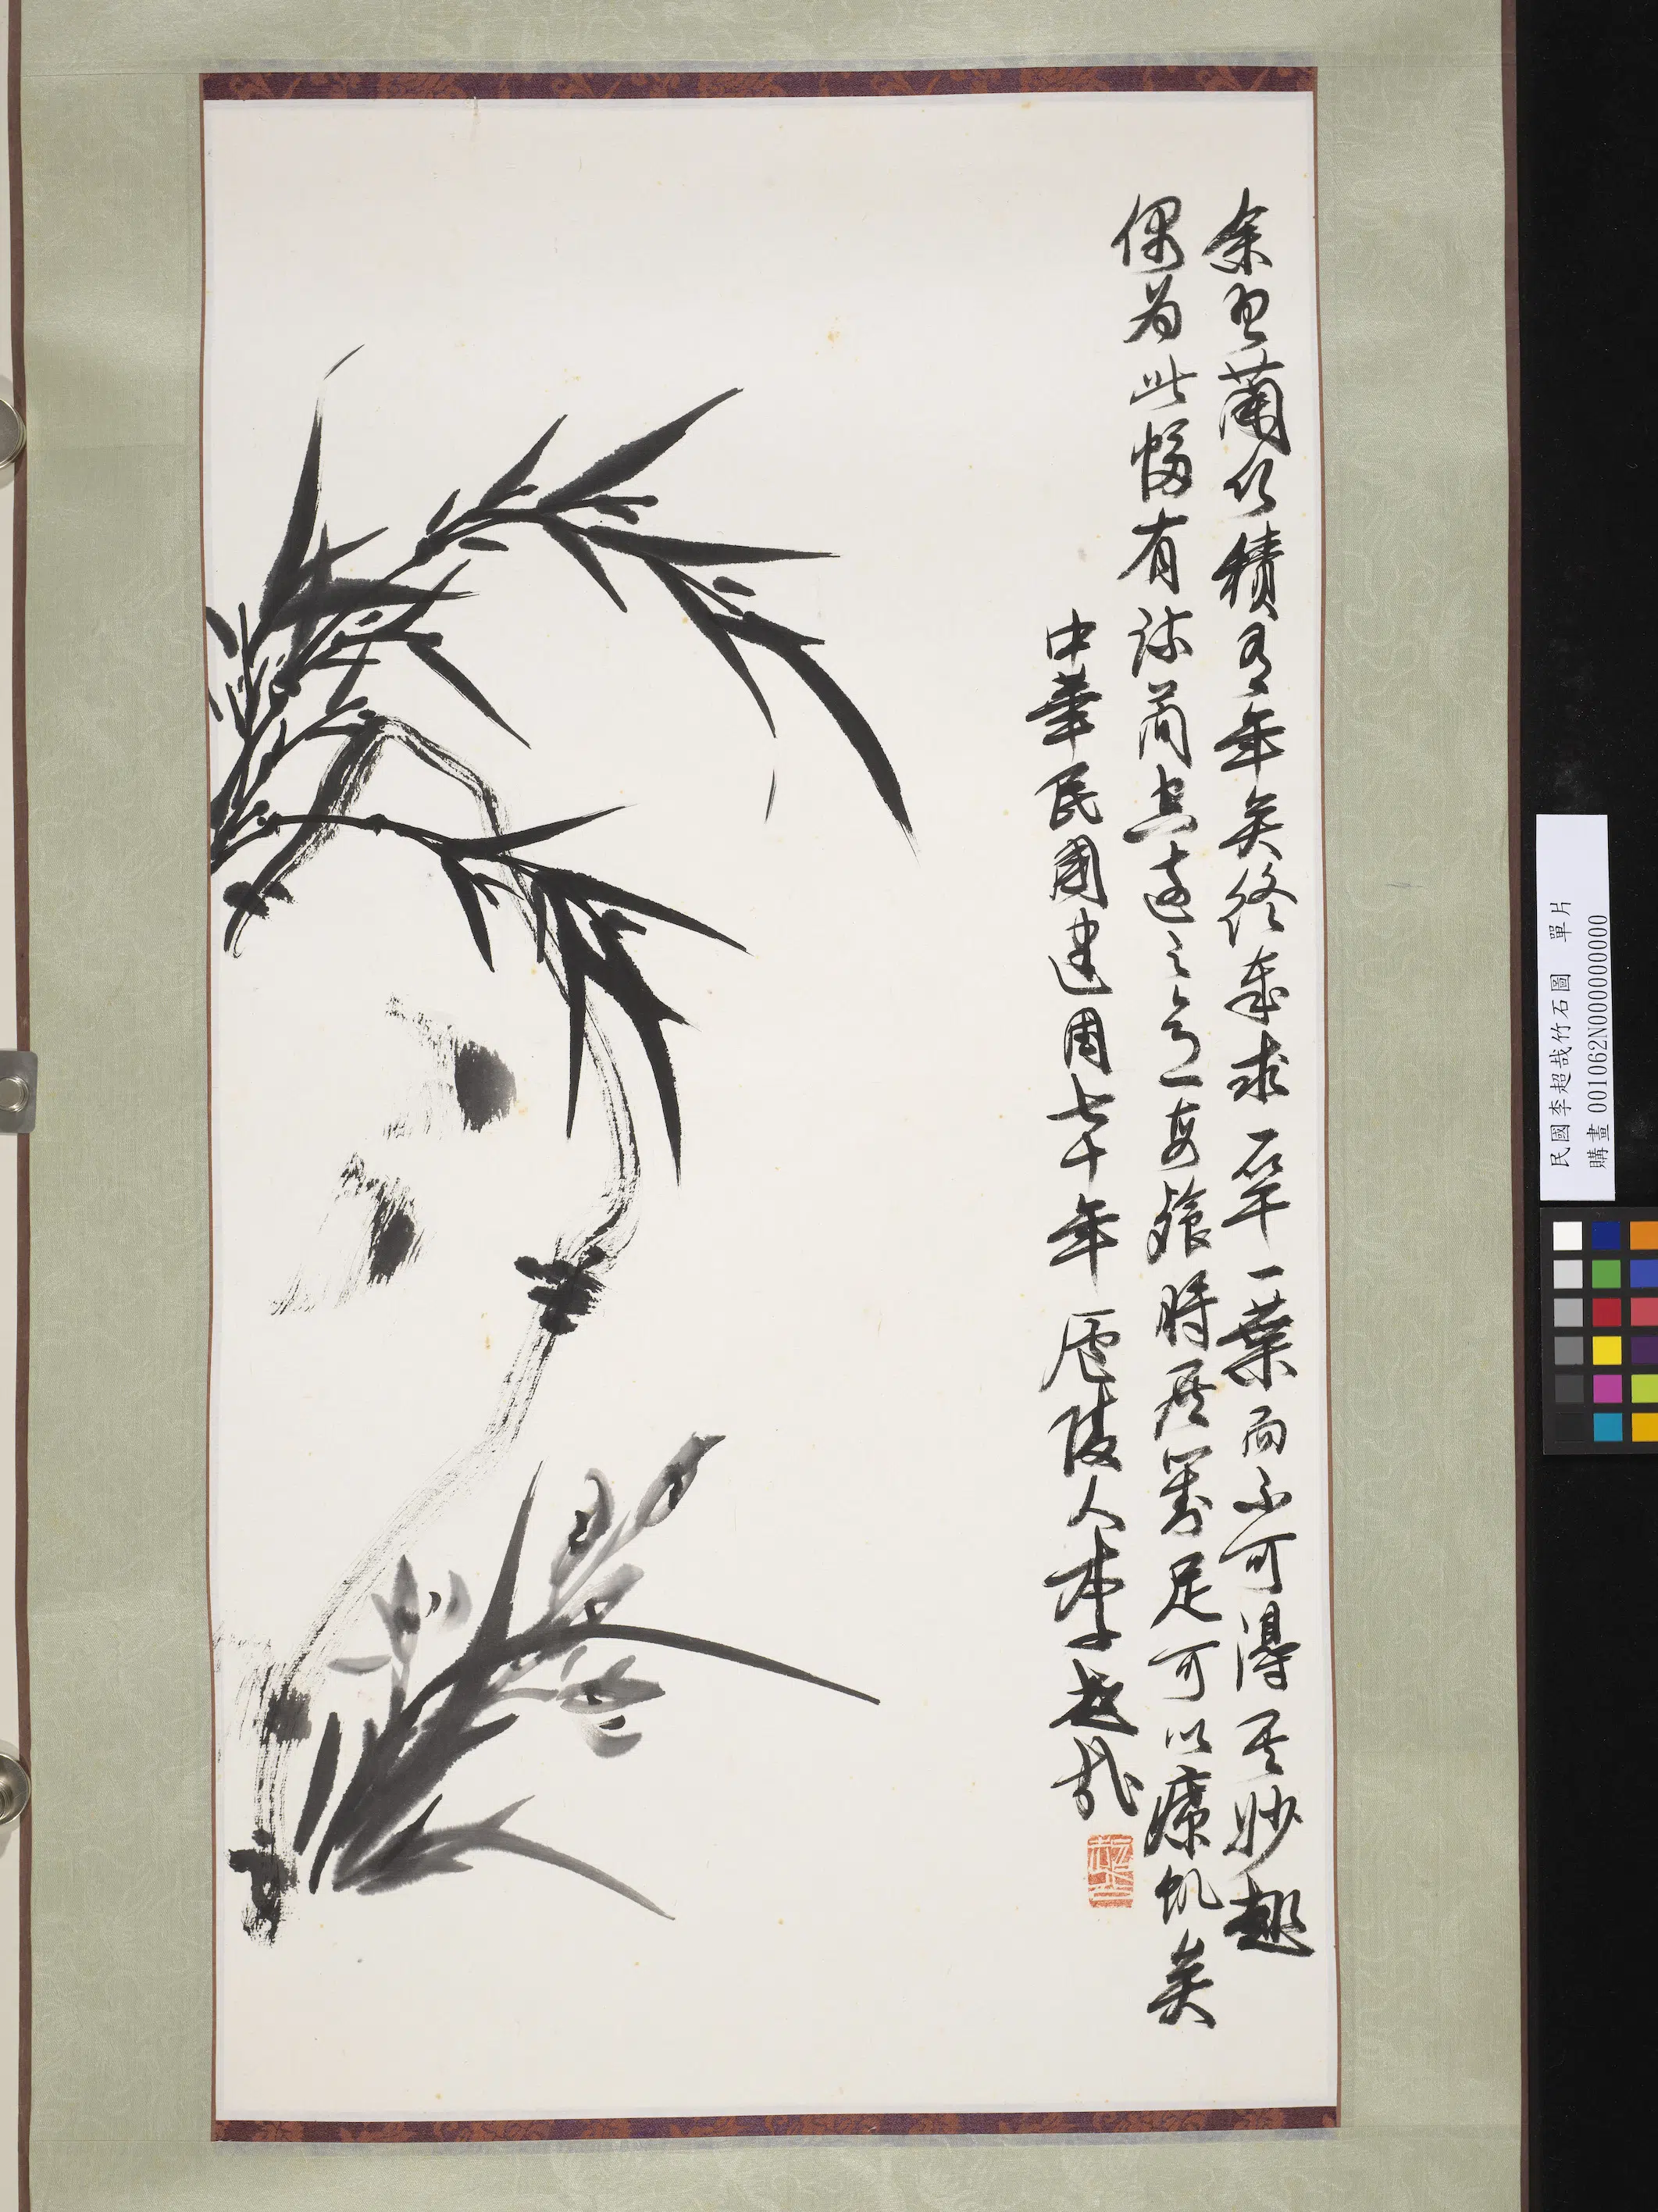 余畫蘭竹積有年矣終歲求一竿一葉而不可得其妙趣
偶為此幅有疏簡遠之意每飧時展對足可以療飢矣
中華民國建國七十年廬陵人李超哉
民國李超哉竹石圖 單片
購畫 001062N000000000